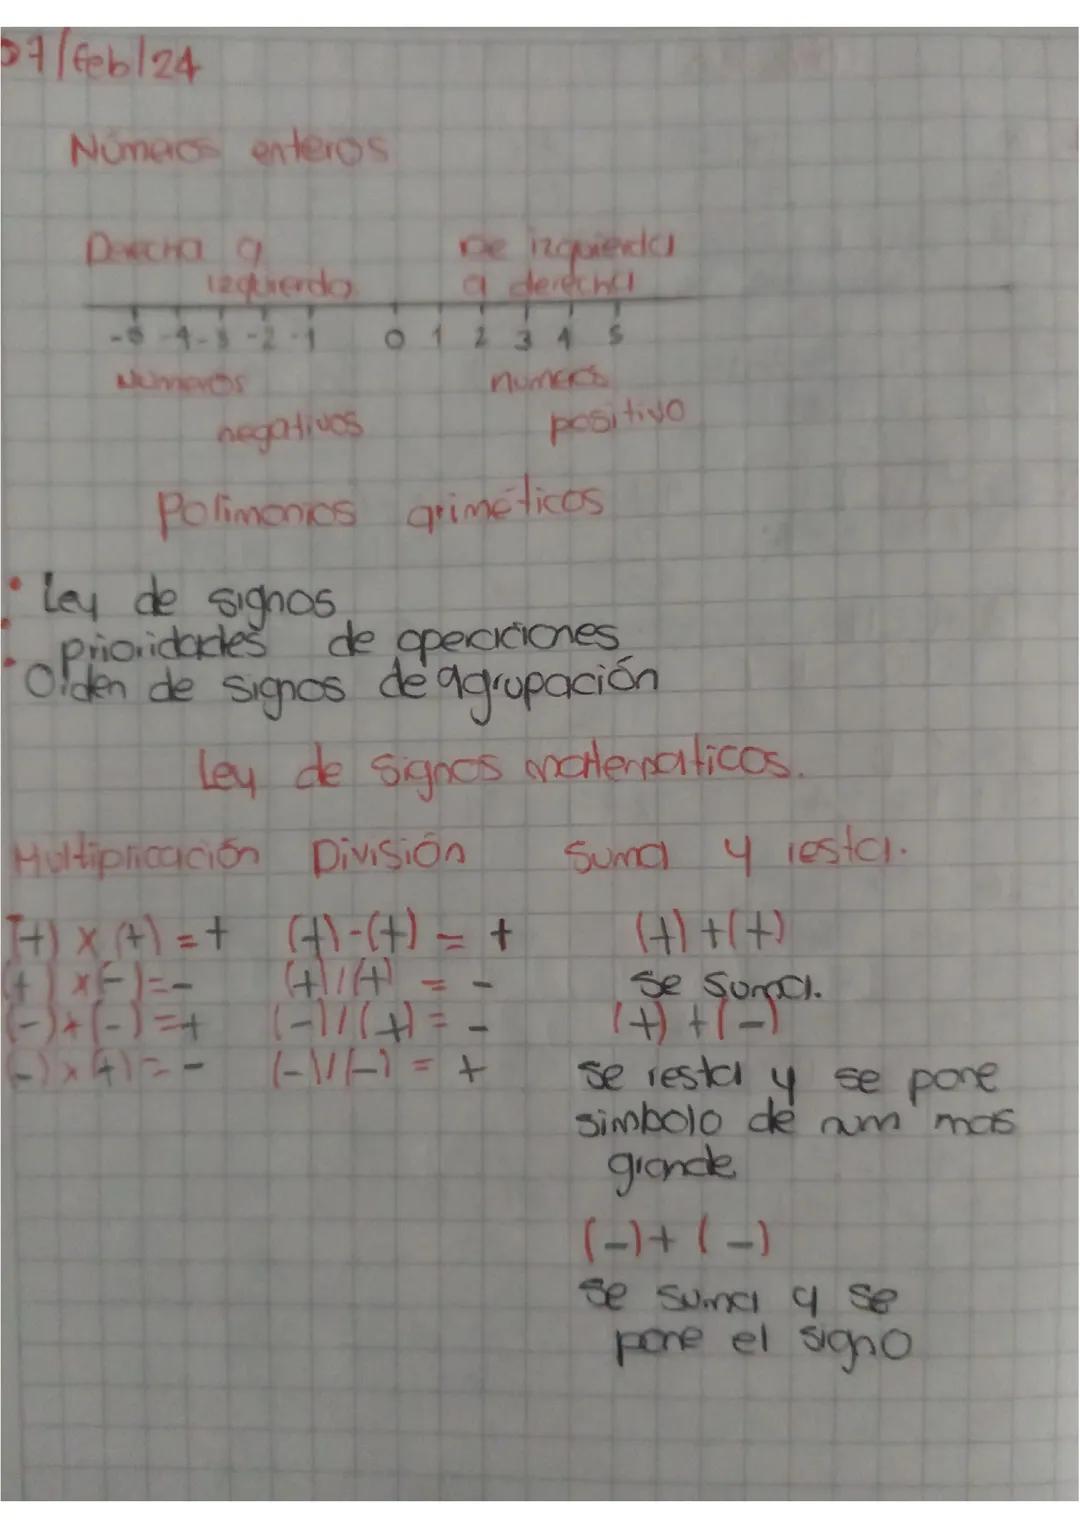 07/feb/24
Números enteros
Derecha a
izquierda
De izquierda
a derecha
-5 -4 -3 -2 -1 0 1 2 3 4 5
Numeros
negativos
numeros
positivo
Polimonios arimeticos
• Ley de signos
• prioridades de operaciones
• Orden de signos de agrupación
Ley de signos matematicos.
Multiplicación División Suma y resta.
(+) x (+) = + (+) - (+) = + (+) + (+)
(+) x (-) = - (+) / (+) = - se suma.
(-) x (-) = + (-) / (+) = - (+) + (-)
(-) x (+) = - (-) / (-) = +
se resta y se pone
simbolo de num mas
grande
(-) + (-)
se suma y se
pone el signo